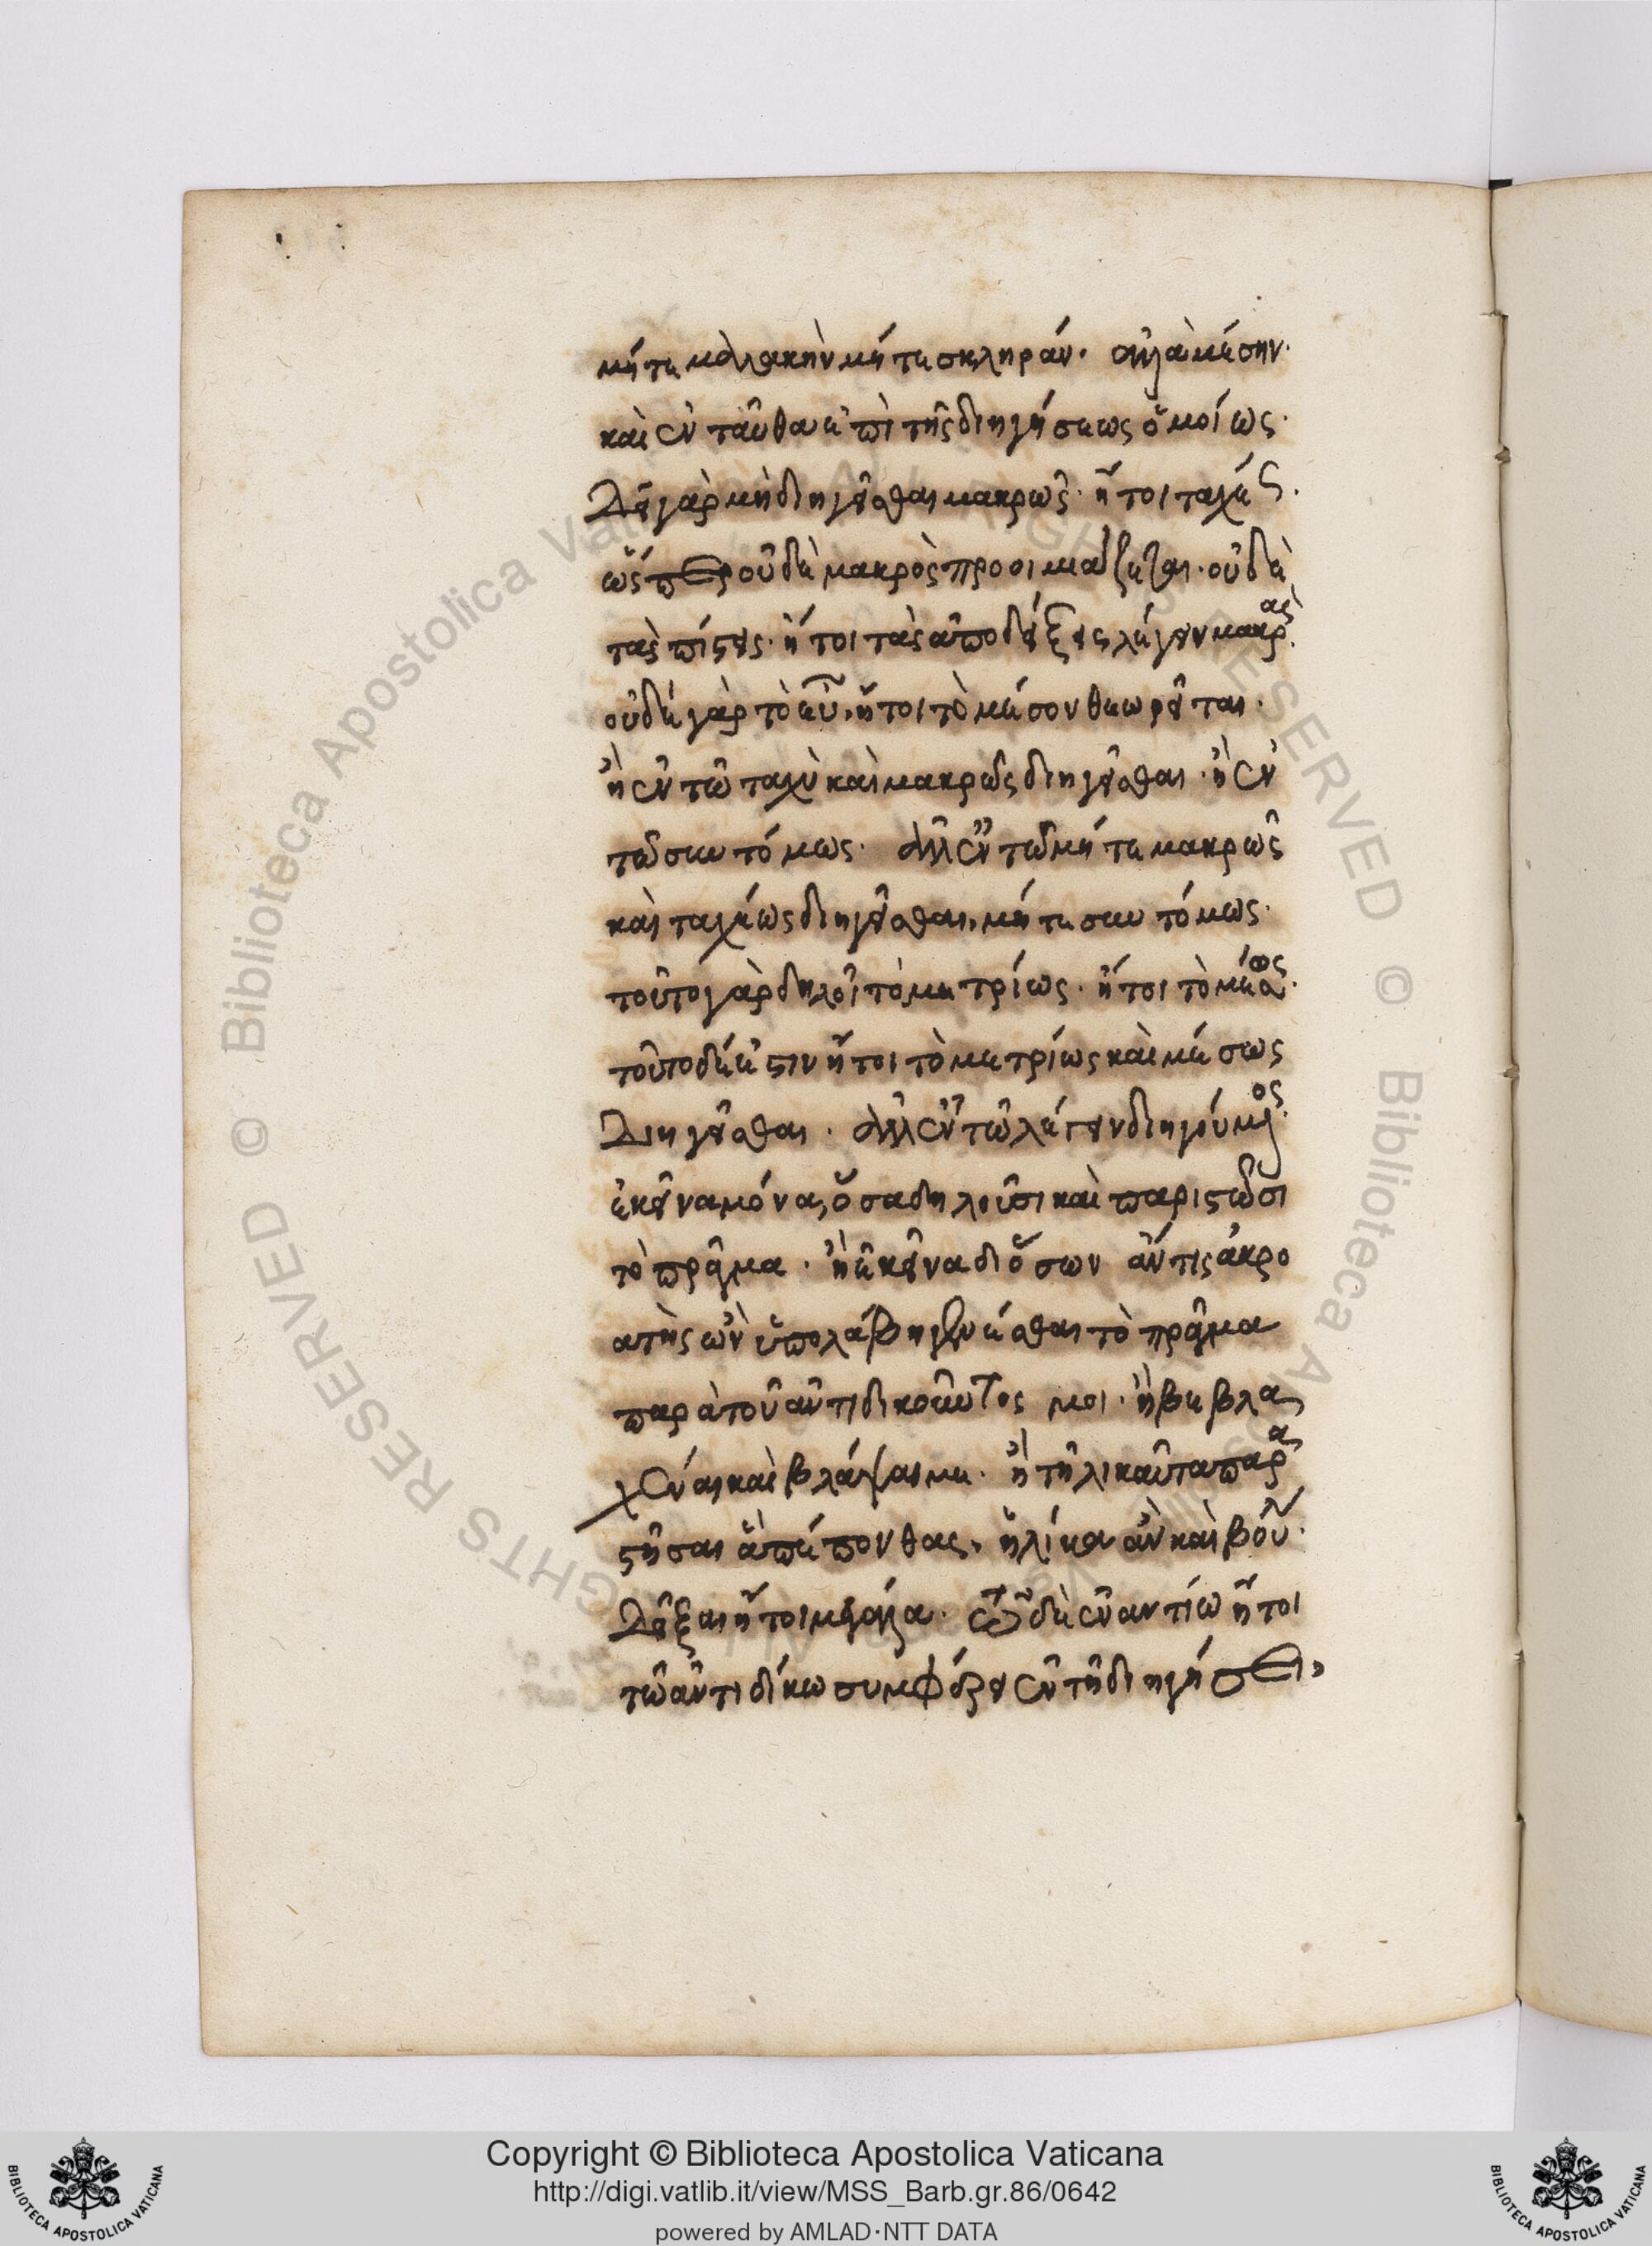 μήτε μαλακὴν μήτε σκληράν· ἀλλὰ μέσην·
καὶ ἐνταῦθα ἐπὶ τῆς διηγήσεως ὁμοίως·
Δεῖ γὰρ μὴ διηγεῖσθαι μακρῶς· ἤτοι ταχέως.
ὥσπερ οὐδὲ μακρὸς προοιμιάζεσθαι· οὐδὲ
τὰς πίστεις· ἤτοι τὰς ἀποδείξεις λέγειν μακράς.
οὐδὲ γὰρ τὸ εὖ, ἤτοι τὸ μέσον θεωρεῖται·
ἢ ἐν τῶ ταχὺ καὶ μακρῶς διηγεῖσθαι· ἢ ἐν
τῶ συντόμως· ἀλλ' ἐν τῶ μήτε μακρῶς
καὶ ταχέως διηγεῖσθαι, μήτε συντόμως·
τοῦτο γὰρ δηλοῖ τὸ μετρίως· ἤτοι τὸ μέσως·
τοῦτο δέ ἐστιν ἤτοι τὸ μετρίως καὶ μέσως
Διηγεῖσθαι· ἀλλ' ἐν τῶ λέγειν διηγούμενος·
ἐκεῖνα μόνα, ὅσα δηλοῦσι καὶ παριστῶσι
τὸ πρᾶγμα· ἢ ἐκεῖνα δι' ὅσων ἄν τις ἀκρο
ατὴς ὢν ὑπολάβη γενέσθαι τὸ πρᾶγμα
παρὰ τοῦ ἀντιδικοῦντος μοι· ἢ βεβλα
φέναι καὶ βλάψαι με· ἢ τηλικαῦτα παρα
στῆσαι ἃ πέπονθας, ἡλίκα ἂν καὶ βούλει
Δεῖξαι ἤτοι μεγάλα· τῶ δὲ ἐναντίω ἤτοι
τῶ ἀντιδίκω συμφέρει ἐν τῆ διηγήσει,
Copyright © Biblioteca Apostolica Vaticana
http://digi.vatlib.it/view/MSS_Barb.gr.86/0642
powered by AMLAD·NTT DATA